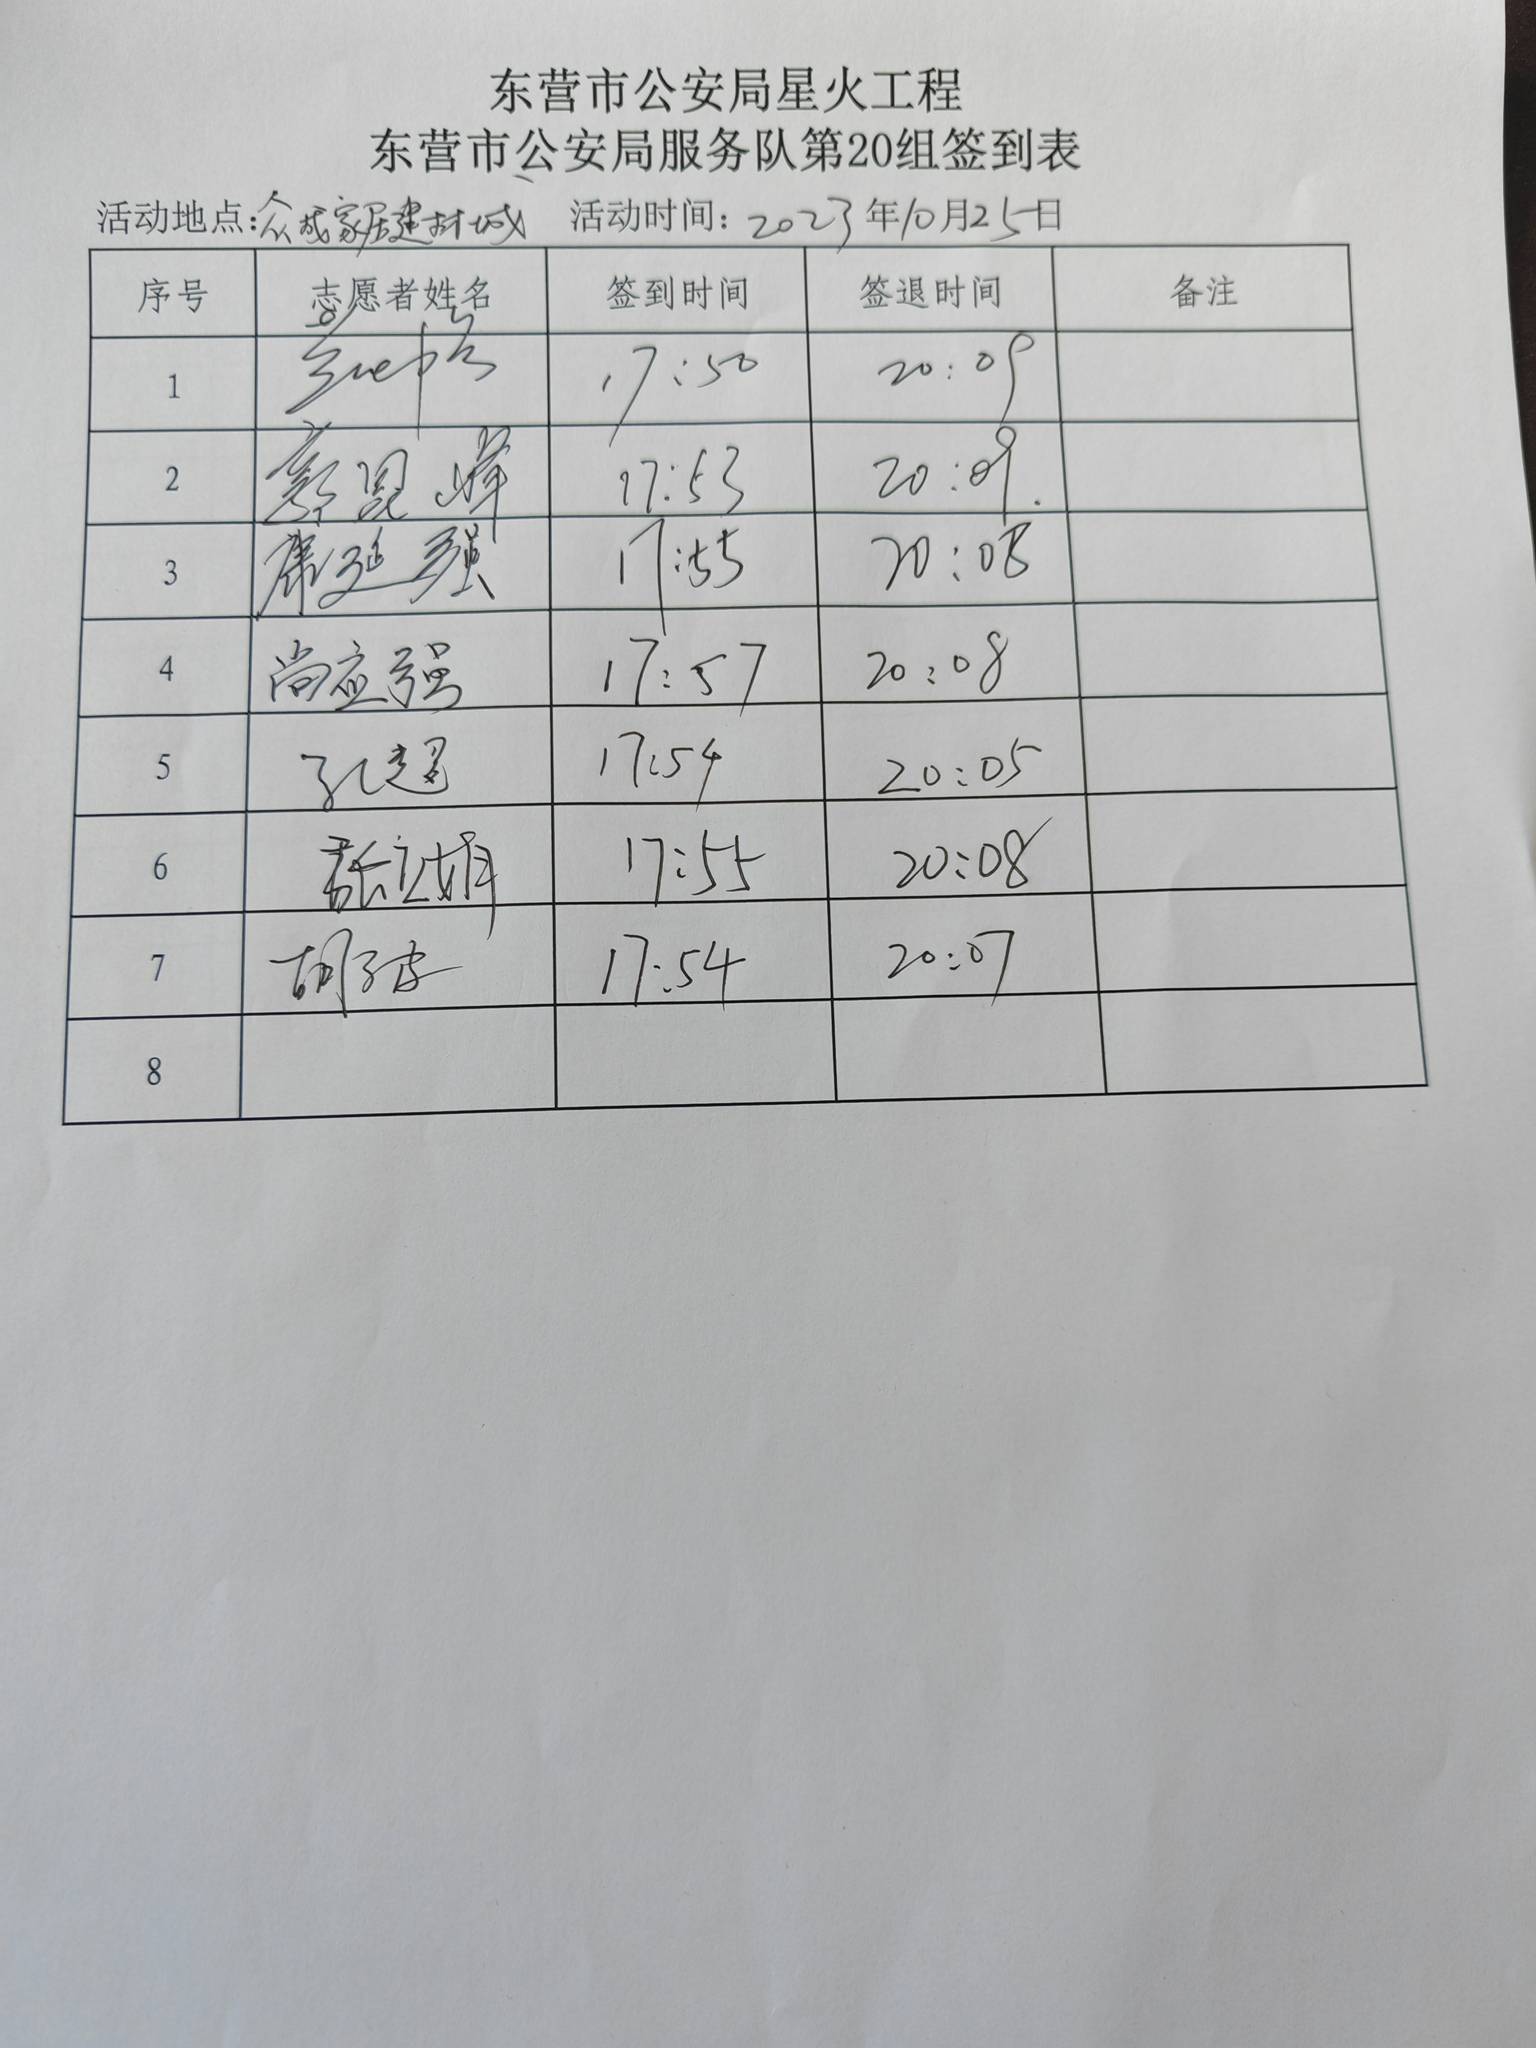 东营市公安局星火工程
东营市公安局服务队第20组签到表
活动地点:众成家居建材城 活动时间: 2023年10月25日
序号 志愿者姓名 签到时间 签退时间 备注
1 17:50 20:09
2 17:53 20:09.
3 康延强 17:55 20:08
4 尚应强 17:57 20:08
5 孔超 17:54 20:05
6 17:55 20:08
7 17:54 20:07
8